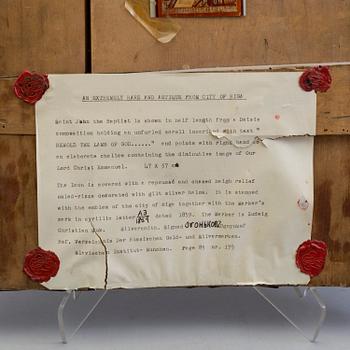 AN EXTREMELY RARE AND ANTIQUE FROM CITY OF RIGA
Saint John the Baptist is shown in half length from a Deisis
composition holding an unfurled scroll inscribed with text "
BEHOLD THE LAMB OF GOD....." and points with right hand to
an elaborate chalice containing the diminutive image of Our
Lord Christ Emmanuel. 47 X 37 cm
The Icon is covered with a repoussé and chased heigh relief
oxlad-rizza decorated with gilt silver halos. It is stamped
with the emblem of the city of Riga together with the Marker's
mark in cyrillic letter АЗ 1859 dated 1859. The Marker is Ludwig
Christian Silversmith. Signed
Ref. Verzeichnis der Russischen Gold- und Silvermarken.
Slavisches Institut- Munchen. Page 85 nr. 175